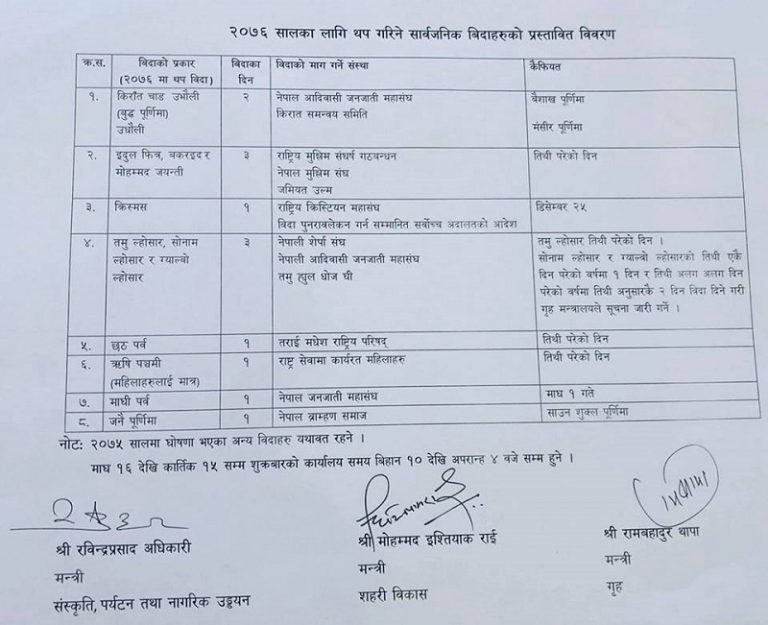 २०७६ सालका लागि थप गरिने सार्वजनिक बिदाहरुको प्रस्तावित विवरण
क्र.स. बिदाको प्रकार (२०७६ मा थप विदा) बिदाका दिन बिदाको माग गर्ने संस्था कैफियत
१. किराँत चाड उभौली २ नेपाल आदिवासी जनजाती महासंघ बैशाख पूर्णिमा
(बुद्ध पूर्णिमा) किरात समन्वय समिति
उधौली मंसीर पूर्णिमा
२. इदुल फित्र, बकरइद र ३ राष्ट्रिय मुश्लिम संघर्ष गठबन्धन तिथी परेको दिन
मोहम्मद जयन्ती नेपाल मुश्लिम संघ
जमियत उल्म
३. क्रिस्मस १ राष्ट्रिय क्रिस्टियन महासंघ डिसेम्बर २५
विदा पुनरावलेकन गर्न सम्मानित सर्वोच्च अदालतको आदेश
४. तमु ल्होसार, सोनाम ३ नेपाली शेर्पा संघ तमु ल्होसार तिथी परेको दिन ।
ल्होसार र ग्याल्वो नेपाली आदिवासी जनजाती महासंघ सोनाम ल्होसार र ग्याल्वो ल्होसारको तिथी एकै
ल्होसार तमु ह्युल धोज घी दिन परेको वर्षमा १ दिन र तिथी अलग अलग दिन
परेको वर्षमा तिथी अनुसारकै २ दिन विदा दिने गरी
गृह मन्त्रालयले सूचना जारी गर्ने ।
५. छठ पर्व १ तराई मधेश राष्ट्रिय परिषद् तिथी परेको दिन
६. ऋषि पञ्चमी १ राष्ट्र सेवामा कार्यरत महिलाहरु तिथी परेको दिन
(महिलाहरुलाई मात्र)
७. माघी पर्व १ नेपाल जनजाती महासंघ माघ १ गते
८. जनै पूर्णिमा १ नेपाल ब्राम्हण समाज साउन शुक्ल पूर्णिमा
नोट: २०७५ सालमा घोषणा भएका अन्य विदाहरु यथावत रहने ।
माघ १६ देखि कार्तिक १५ सम्म शुक्रबारको कार्यालय समय बिहान १० देखि अपरान्ह ४ वजे सम्म हुने ।
श्री रविन्द्रप्रसाद अधिकारी श्री मोहम्मद इश्तियाक राई श्री रामबहादुर थापा
मन्त्री मन्त्री मन्त्री
संस्कृति, पर्यटन तथा नागरिक उड्डयन शहरी विकास गृह